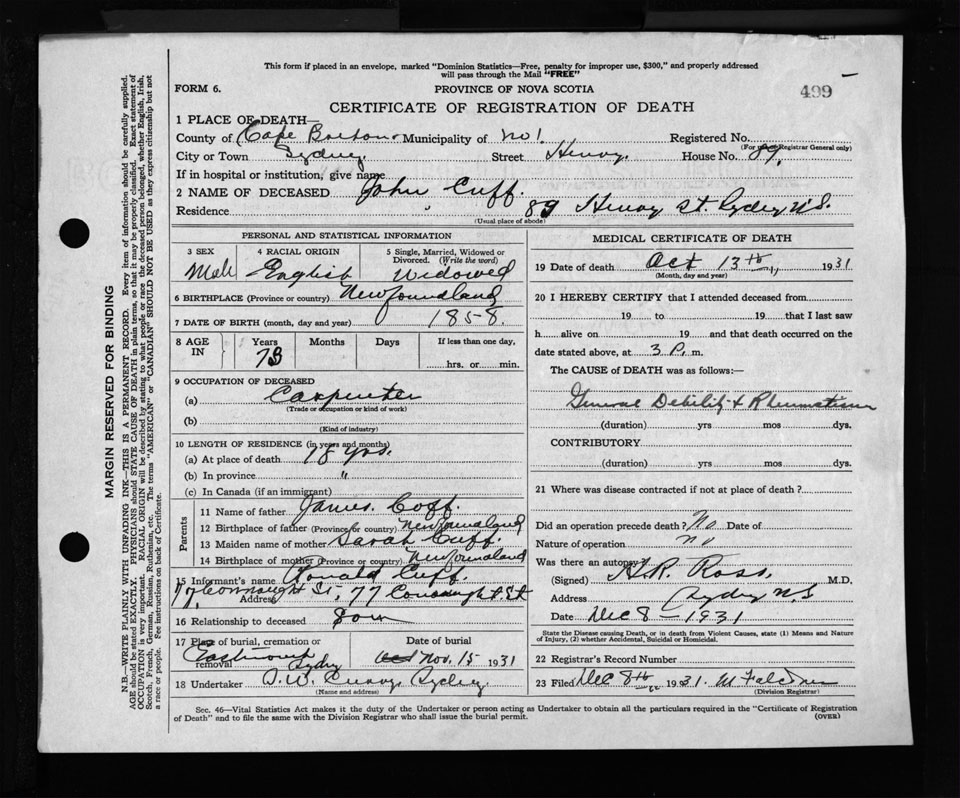 This form if placed in an envelope, marked "Dominion Statistics—Free, penalty for improper use, $300," and properly addressed
will pass through the Mail "FREE"
FORM 6.
PROVINCE OF NOVA SCOTIA
499
CERTIFICATE OF REGISTRATION OF DEATH
1 PLACE OF DEATH—
County of Cape Breton Municipality of No 1. Registered No.
(For use of Registrar General only)
City or Town Sydney Street Henry. House No. 89,
If in hospital or institution, give name
2 NAME OF DECEASED John Cuff.
Residence 89 Henry St. Sydney N.S.
(Usual place of abode)
PERSONAL AND STATISTICAL INFORMATION
3 SEX 4 RACIAL ORIGIN 5 Single, Married, Widowed or Divorced. (Write the word)
Male English Widowed
6 BIRTHPLACE (Province or country) Newfoundland
7 DATE OF BIRTH (month, day and year) 1858.
8 AGE IN Years Months Days If less than one day,
73 hrs. or min.
9 OCCUPATION OF DECEASED
(a) Carpenter
(Trade or occupation or kind of work)
(b)
(Kind of industry)
10 LENGTH OF RESIDENCE (in years and months)
(a) At place of death 18 yrs.
(b) In province "
(c) In Canada (if an immigrant)
Parents
11 Name of father James Coff.
12 Birthplace of father (Province or country) Newfoundland
13 Maiden name of mother Sarah Cuff.
14 Birthplace of mother (Province or country) Newfoundland
15 Informant's name Ronald Cuff.
Connaught St, 77 Connaught St
Address
16 Relationship to deceased Son
17 Place of burial, cremation or removal Date of burial
Eastmount Sydney Nov. 15 1931
18 Undertaker Sydney.
(Name and address)
MEDICAL CERTIFICATE OF DEATH
19 Date of death Oct 13th 1931
(Month, day and year)
20 I HEREBY CERTIFY that I attended deceased from
19 to 19 that I last saw
h alive on 19 and that death occurred on the
date stated above, at 3 P. m.
The CAUSE of DEATH was as follows:—
General Debility & Rheumatism
(duration) yrs mos dys.
CONTRIBUTORY
(duration) yrs mos dys.
21 Where was disease contracted if not at place of death?
Did an operation precede death? No Date of
Nature of operation no
Was there an autopsy?
(Signed) H.R. Ross, M.D.
Address Sydney N.S
Date Dec 8 - 1931
State the Disease causing Death, or in death from Violent Causes, state (1) Means and Nature of Injury, (2) whether Accidental, Suicidal or Homicidal.
22 Registrar's Record Number
23 Filed Dec 8th 1931.
(Division Registrar)
Sec. 46—Vital Statistics Act makes it the duty of the Undertaker or person acting as Undertaker to obtain all the particulars required in the "Certificate of Registration
of Death" and to file the same with the Division Registrar who shall issue the burial permit.
(OVER)
MARGIN RESERVED FOR BINDING
N.B.—WRITE PLAINLY WITH UNFADING INK—THIS IS A PERMANENT RECORD. Every item of information should be carefully supplied.
AGE should be stated EXACTLY. PHYSICIANS should STATE CAUSE OF DEATH in plain terms, so that it may be properly classified. Exact statement of
OCCUPATION is very important. RACIAL ORIGIN will be described by stating to what people or race the deceased person belonged, whether English, Irish,
Scotch, French, German, Russian, Ruthenian, etc. The terms "AMERICAN" or "CANADIAN" SHOULD NOT BE USED as they express citizenship but not
a race or people. See instructions on back of Certificate.